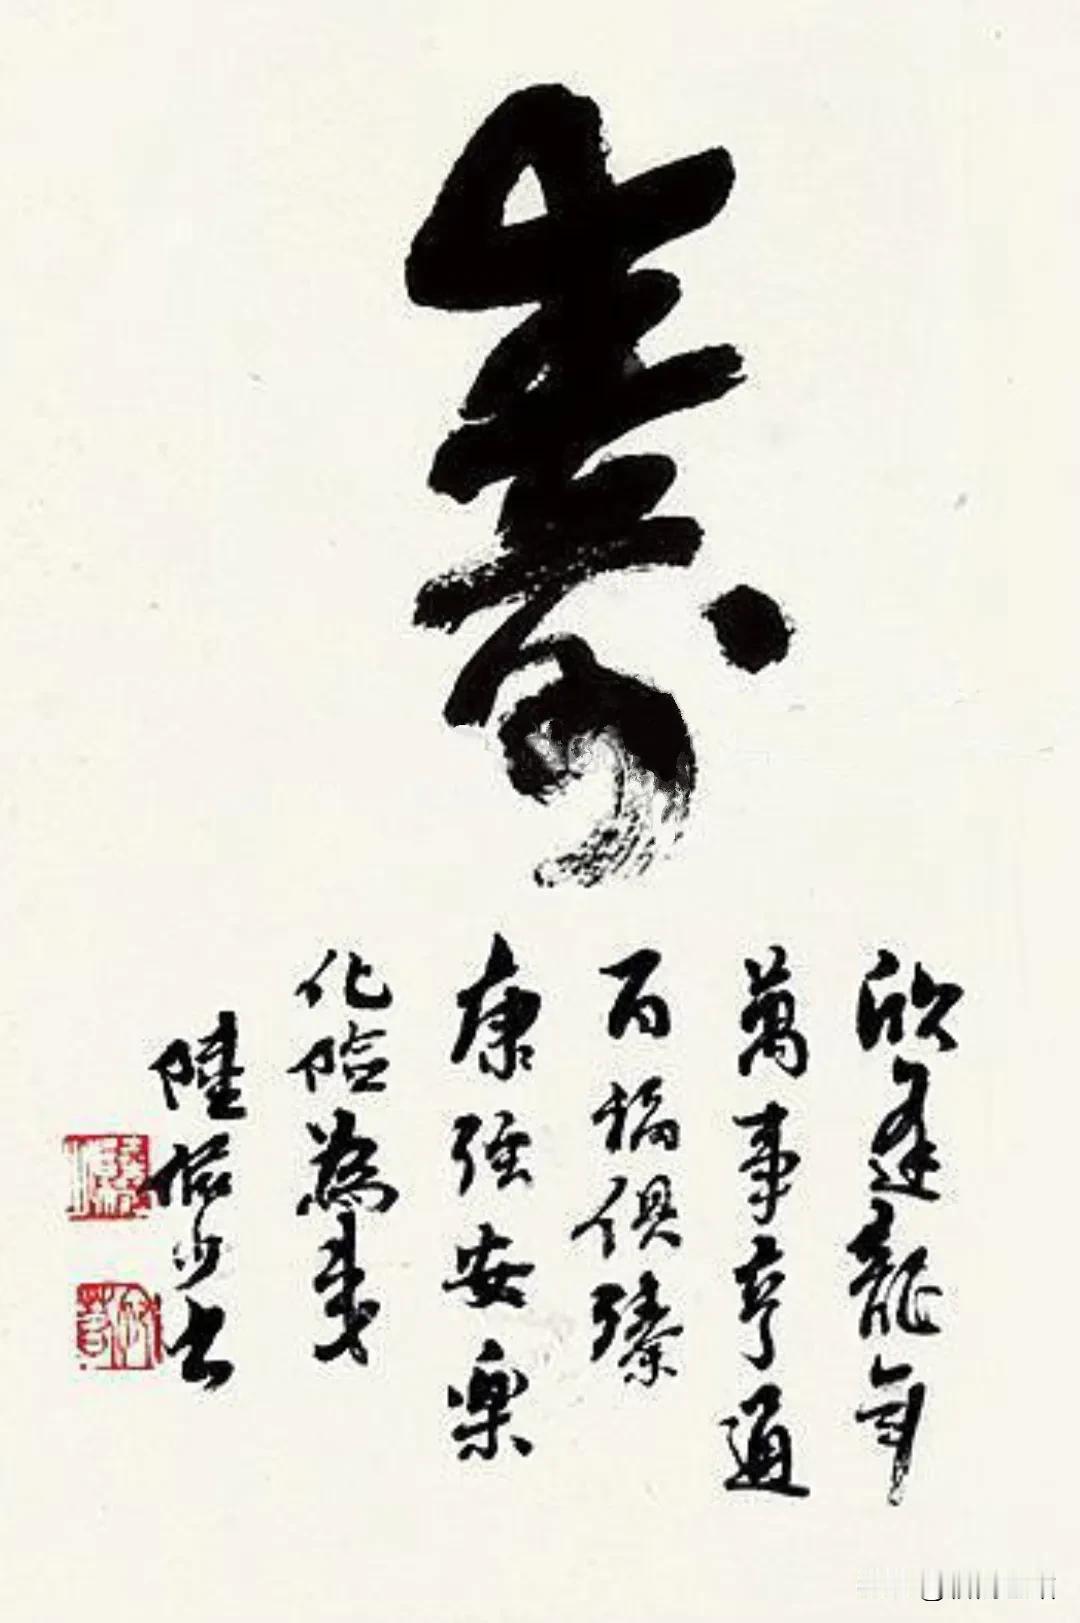 寿
欣逢龍年
萬事亨通
百福俱臻
康強安樂
化險為夷
陸儼少書